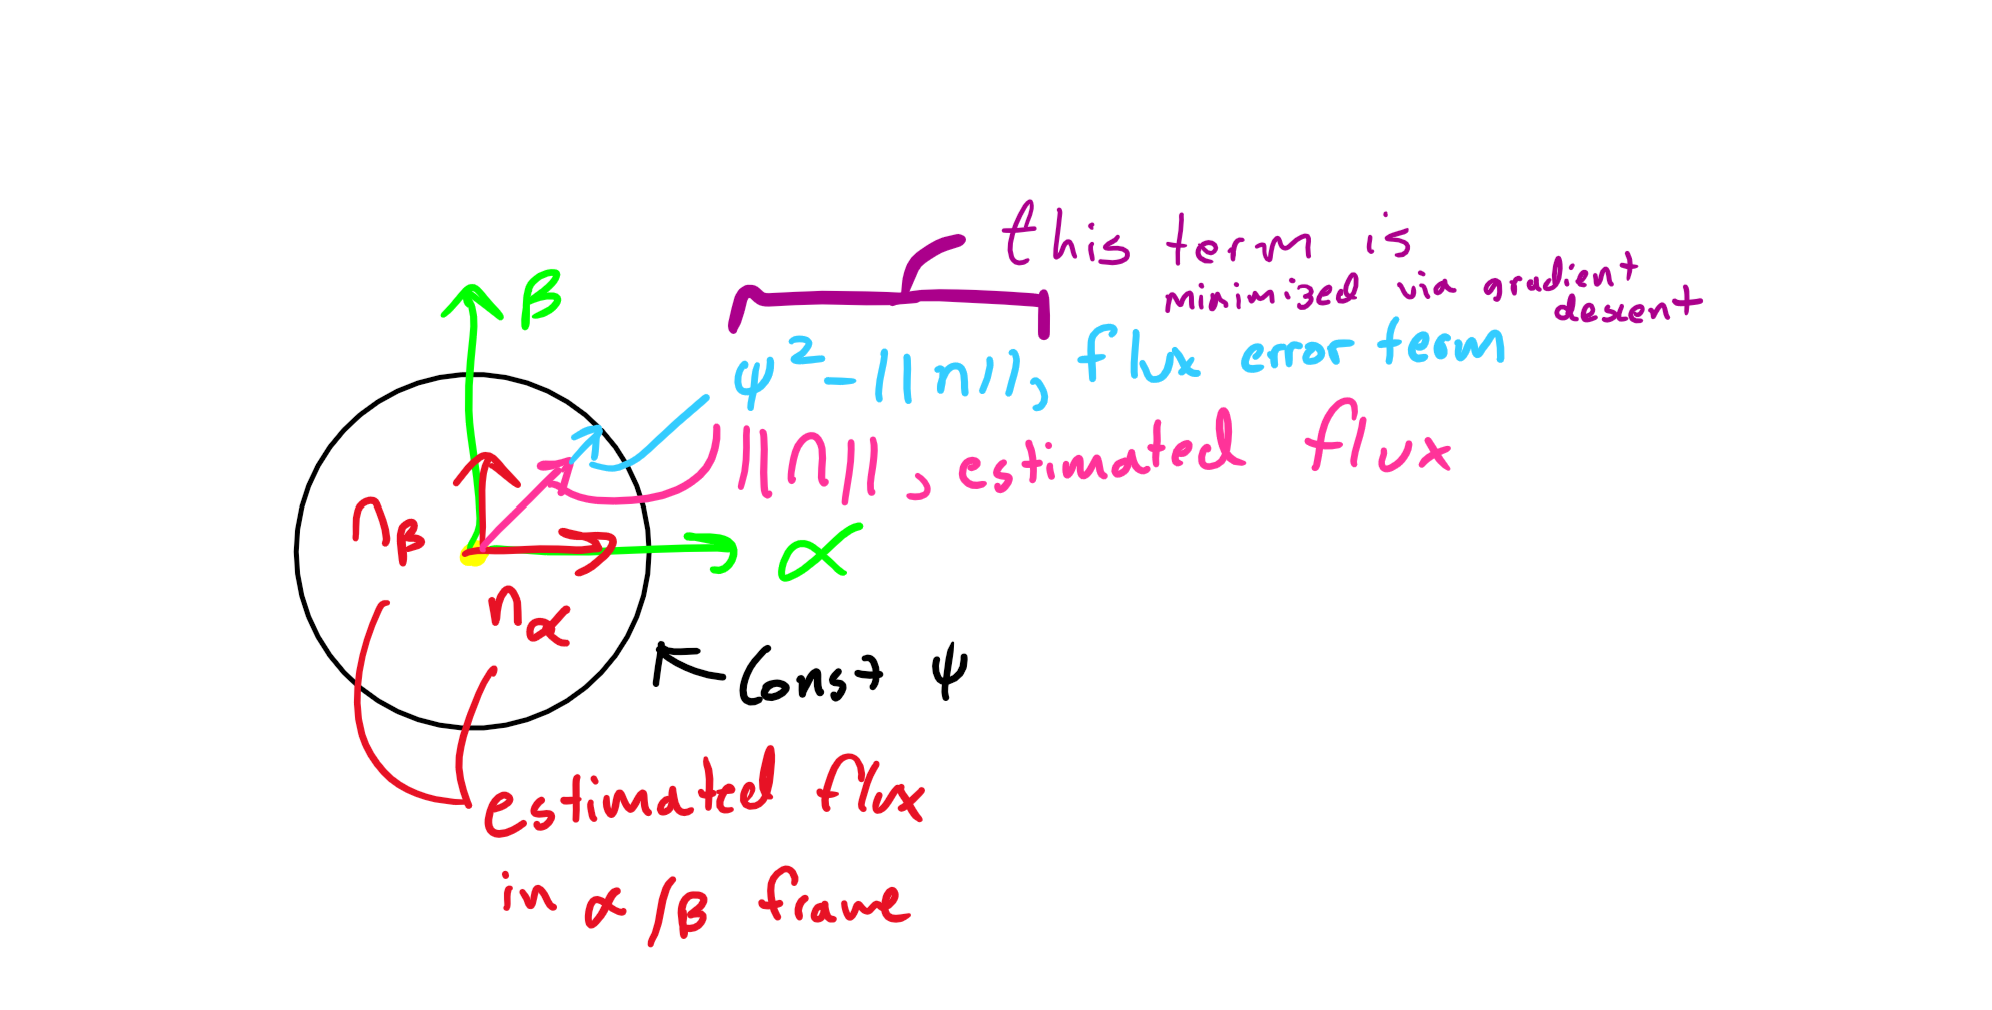 this term is
minimized via gradient
descent
β
ψ² - ||n||, flux error term
||n||, estimated flux
n_β
α
n_α
Const ψ
estimated flux
in α/β frame